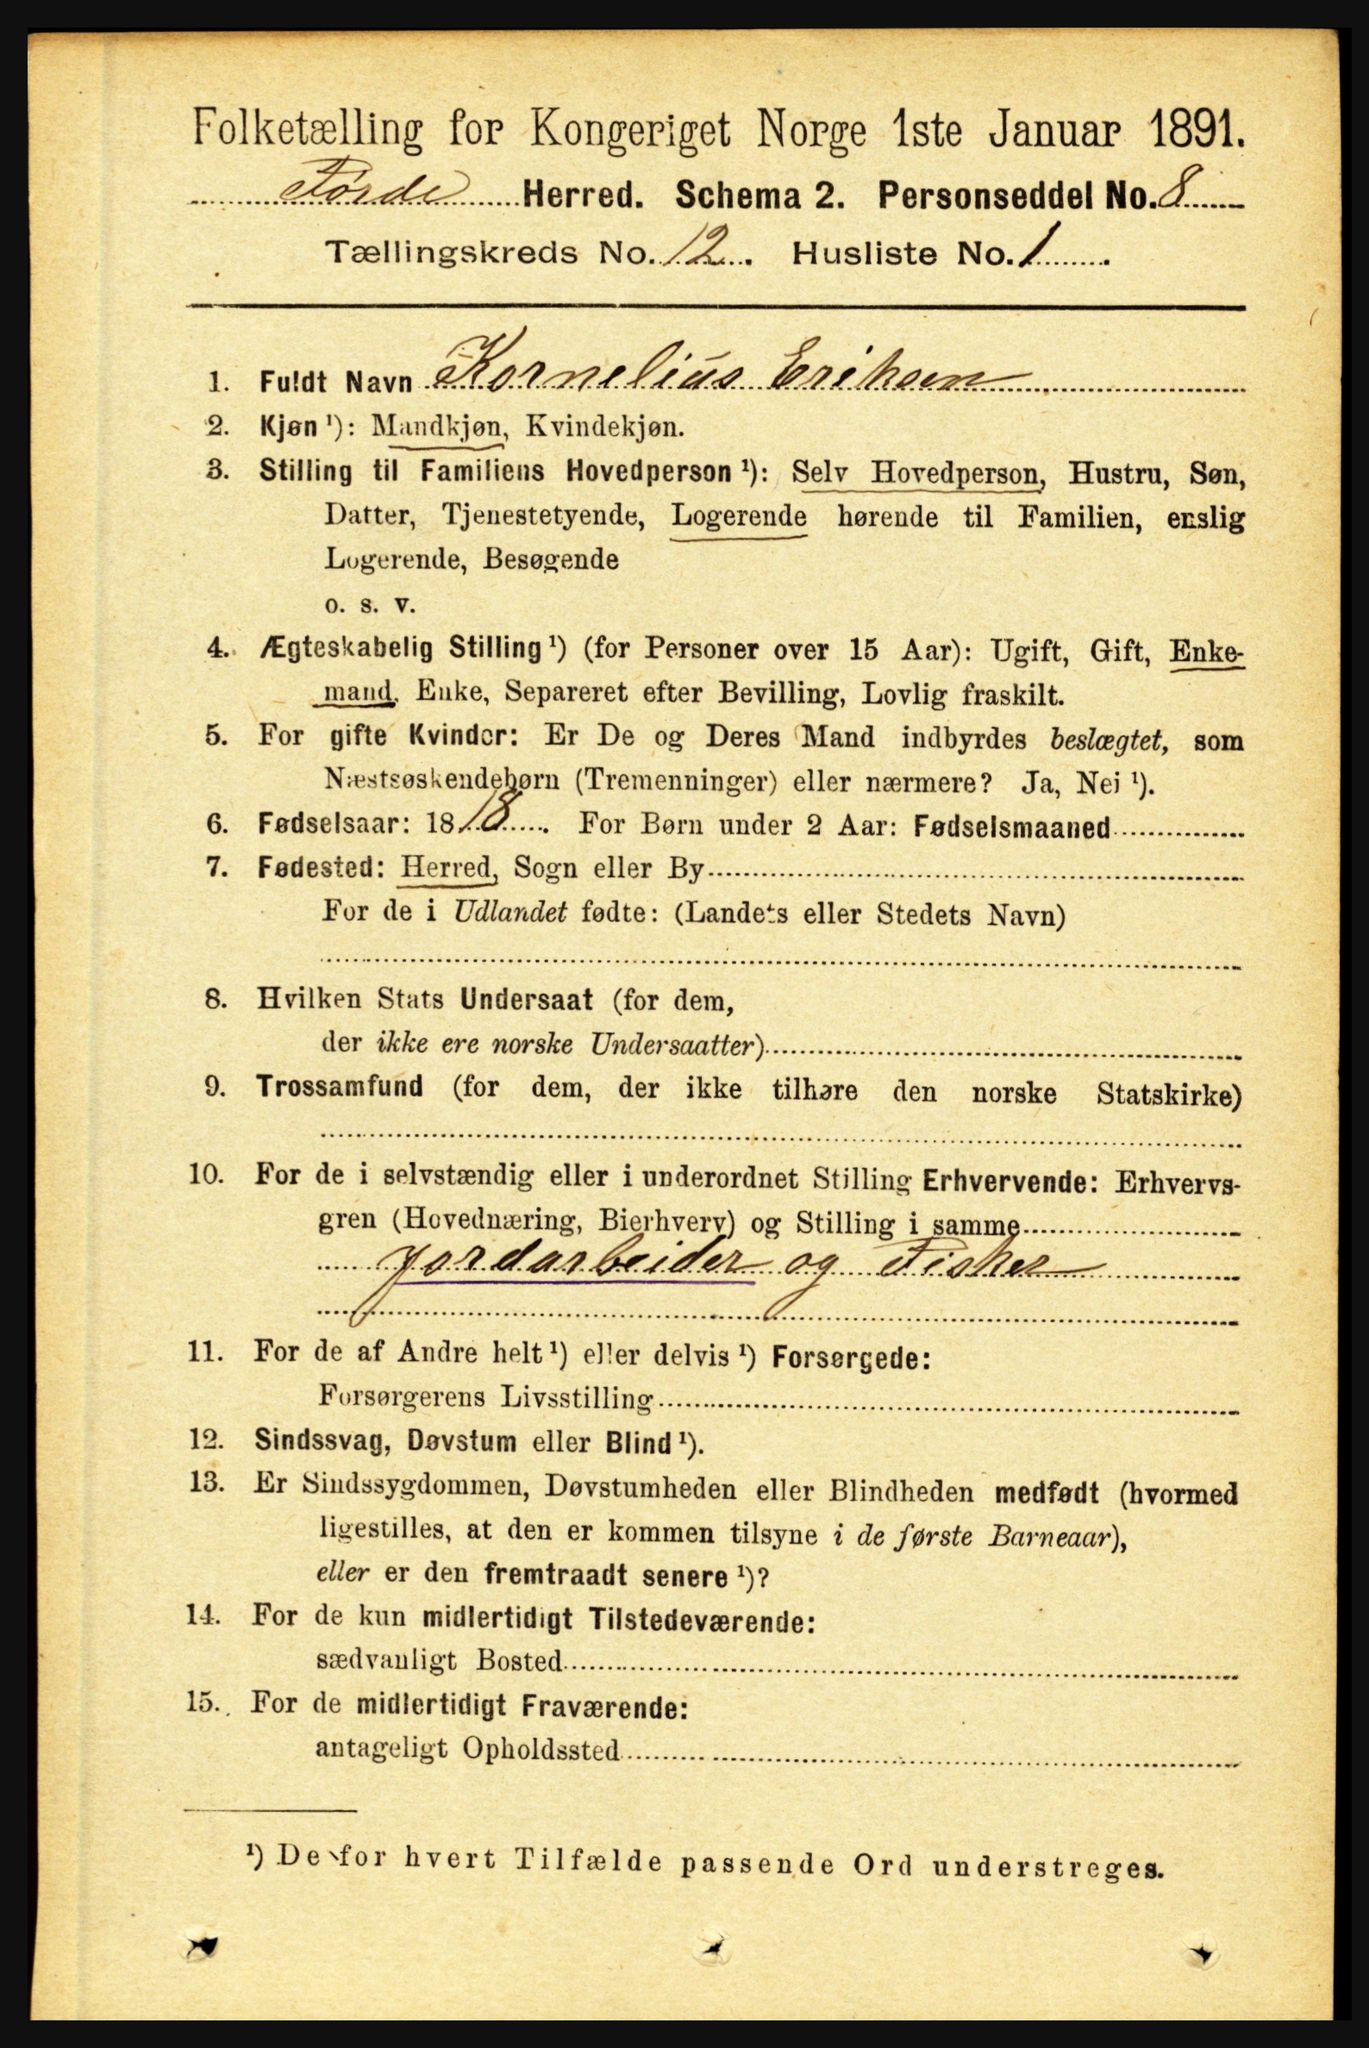 Folketælling for Kongeriget Norge 1ste Januar 1891.
Førde Herred. Schema 2. Personseddel No. 8
Tællingskreds No. 12. Husliste No. 1.
1. Fuldt Navn Kornelius Eriksen
2. Kjøn ¹): Mandkjøn, Kvindekjøn.
3. Stilling til Familiens Hovedperson ¹): Selv Hovedperson, Hustru, Søn,
Datter, Tjenestetyende, Logerende hørende til Familien, enslig
Logerende, Besøgende
o. s. v.
4. Ægteskabelig Stilling ¹) (for Personer over 15 Aar): Ugift, Gift, Enke-
mand, Enke, Separeret efter Bevilling, Lovlig fraskilt.
5. For gifte Kvinder: Er De og Deres Mand indbyrdes beslægtet, som
Næstsøskendebørn (Tremenninger) eller nærmere? Ja, Nei ¹).
6. Fødselsaar: 1818. For Børn under 2 Aar: Fødselsmaaned
7. Fødested: Herred, Sogn eller By
For de i Udlandet fødte: (Landets eller Stedets Navn)
8. Hvilken Stats Undersaat (for dem,
der ikke ere norske Undersaatter)
9. Trossamfund (for dem, der ikke tilhøre den norske Statskirke)
10. For de i selvstændig eller i underordnet Stilling Erhvervende: Erhvervs-
gren (Hovednæring, Bierhverv) og Stilling i samme
Jordarbeider og Fisker
11. For de af Andre helt ¹) eller delvis ¹) Forsørgede:
Forsørgerens Livsstilling
12. Sindssvag, Døvstum eller Blind ¹).
13. Er Sindssygdommen, Døvstumheden eller Blindheden medfødt (hvormed
ligestilles, at den er kommen tilsyne i de første Barneaar),
eller er den fremtraadt senere ¹)?
14. For de kun midlertidigt Tilstedeværende:
sædvanligt Bosted
15. For de midlertidigt Fraværende:
antageligt Opholdssted
¹) De for hvert Tilfælde passende Ord understreges.